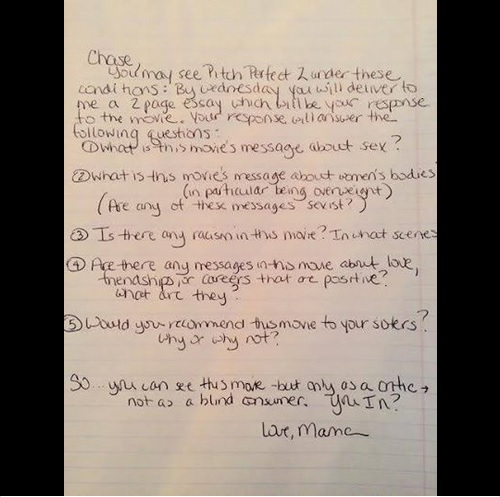 Chase,
You may see Pitch Perfect 2 under these
conditions: By wednesday you will deliver to
me a 2 page essay which will be your response
to the movie. Your response will answer the
following questions:
① What is this movie's message about sex?
② What is this movie's message about women's bodies
(in particular being overweight)
(Are any of these messages sexist?)
③ Is there any racism in this movie? In what scenes
④ Are there any messages in this movie about love,
friendships, or careers that are positive?
What are they?
⑤ Would you recommend this movie to your sisters?
Why or why not?
So... you can see this movie - but only as a critic →
not as a blind consumer. You In?
Love, Mama